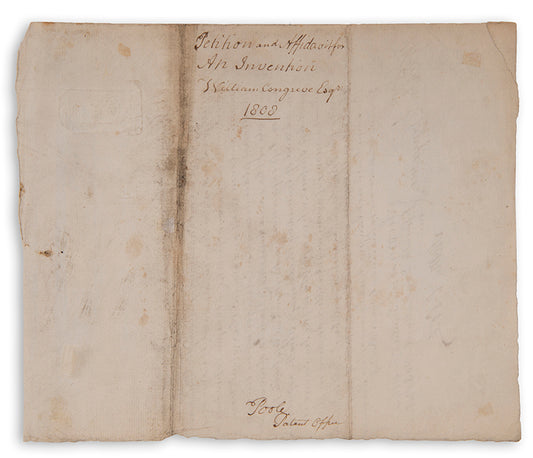 Petition and Affidavit for
An Invention
William Congreve Esqr
1808
Poole
Patent Office